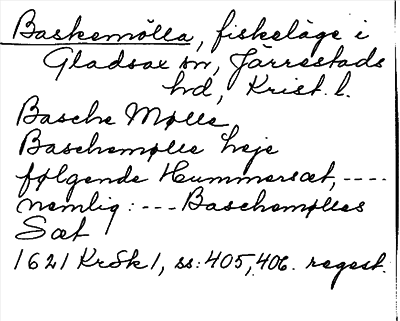 Baskemölla, fiskeläge i
Gladsax sn, Järrestads
hd, Krist. l.
Basche Mølle,
Baschemølle leje
følgende Hummersæt, ----
nemlig: --- Baschemølles
Sæt
1621 KrSk 1, ss: 405, 406. regest.